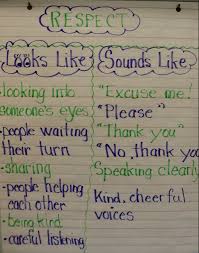 RESPECT
Looks Like
Sounds Like
-looking into
someone's eyes
-people waiting
their turn
-sharing
-people helping
each other
-being kind
-careful listening
"Excuse me!
"Please"
"Thank you"
"No, thank you
Speaking clearly
Kind, cheerful
voices